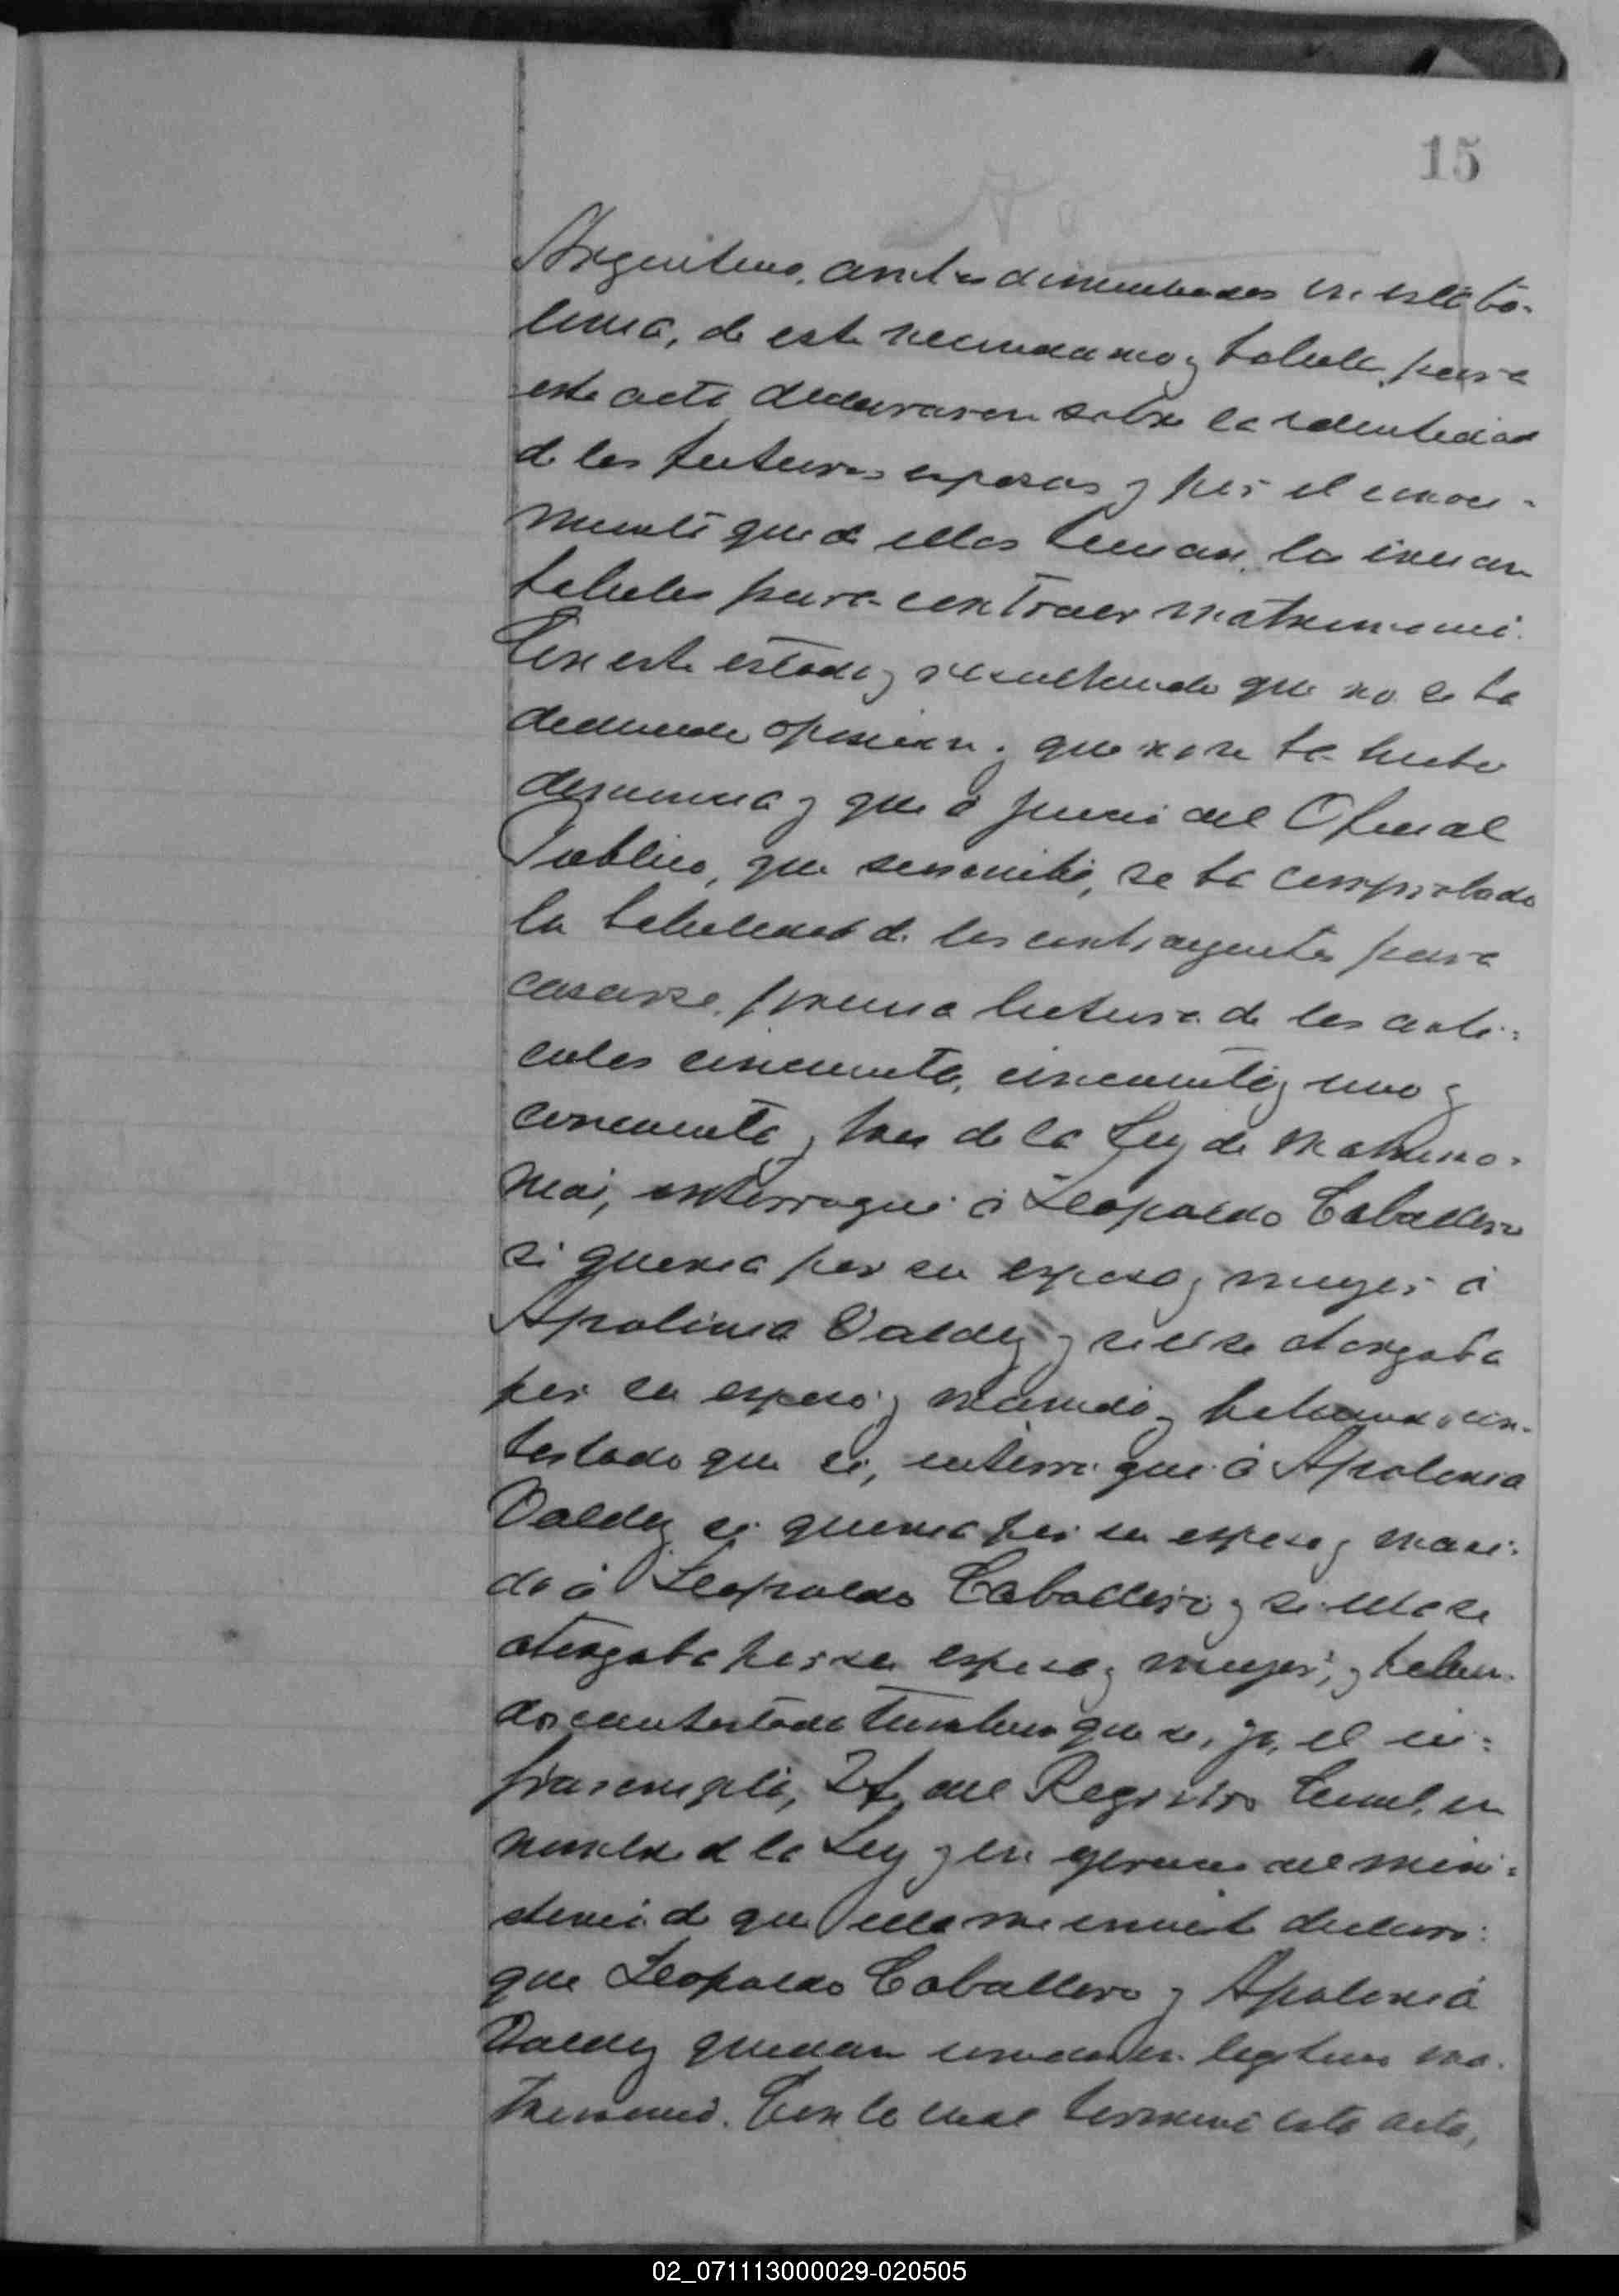 15
Argentino, ambos domiciliados en esta Co-
lonia, de este vecindario y hábiles para
este acto declararon sobre la identidad
de los futuros esposos y por el conoci-
miento que de ellos tenian, los creian
hábiles para contraer matrimonio.
En este estado y resultando que no se ha
deducido oposicion y que no se ha hecho
denuncia y que á juicio del Oficial
Publico, que suscribe, se ha comprobado
la habilidad de los contrayentes para
casarse, previa lectura de los arti-
culos cincuenta, cincuenta y uno y
cincuenta y tres de la Ley de Matrimo-
nio, interrogué á Leopoldo Caballero
si queria por su esposa y mujer á
Apolonia Valdez y si él se otorgaba
por su esposo y marido y habiendo con-
testado que si, interrogué á Apolonia
Valdez si queria por su esposo y mari-
do á Leopoldo Caballero y si ella se
otorgaba por su esposa y mujer, y habien-
do contestado tambien que si, yo, el in-
frascripto, Jefe del Registro Civil, en
nombre de la Ley y en ejercicio del mini-
sterio de que ella me inviste declaro:
que Leopoldo Caballero y Apolonia
Valdez quedan unidos en legitimo ma-
trimonio. Con lo cual terminó este acto,
02_071113000029-020505